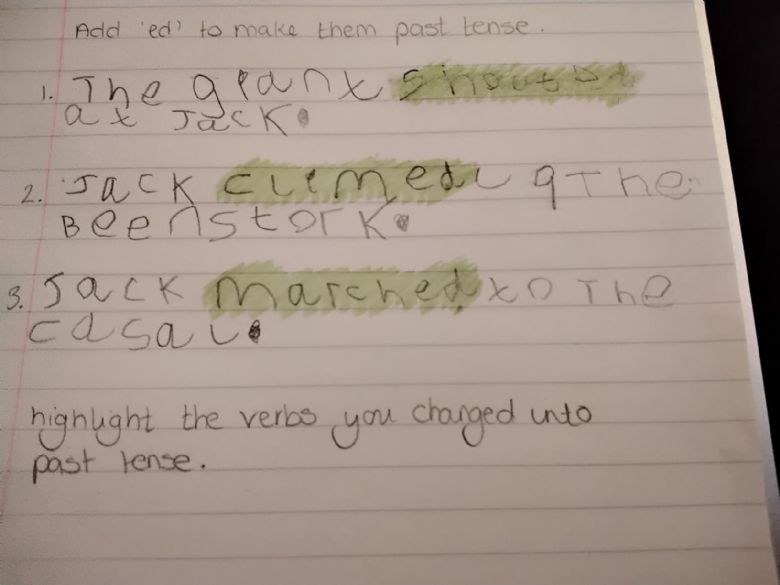 Add 'ed' to make them past tense.
1. The giant shouted
at Jack.
2. Jack climed up The
Beenstork.
3. Jack marched to The
casal.
highlight the verbs you changed into
past tense.